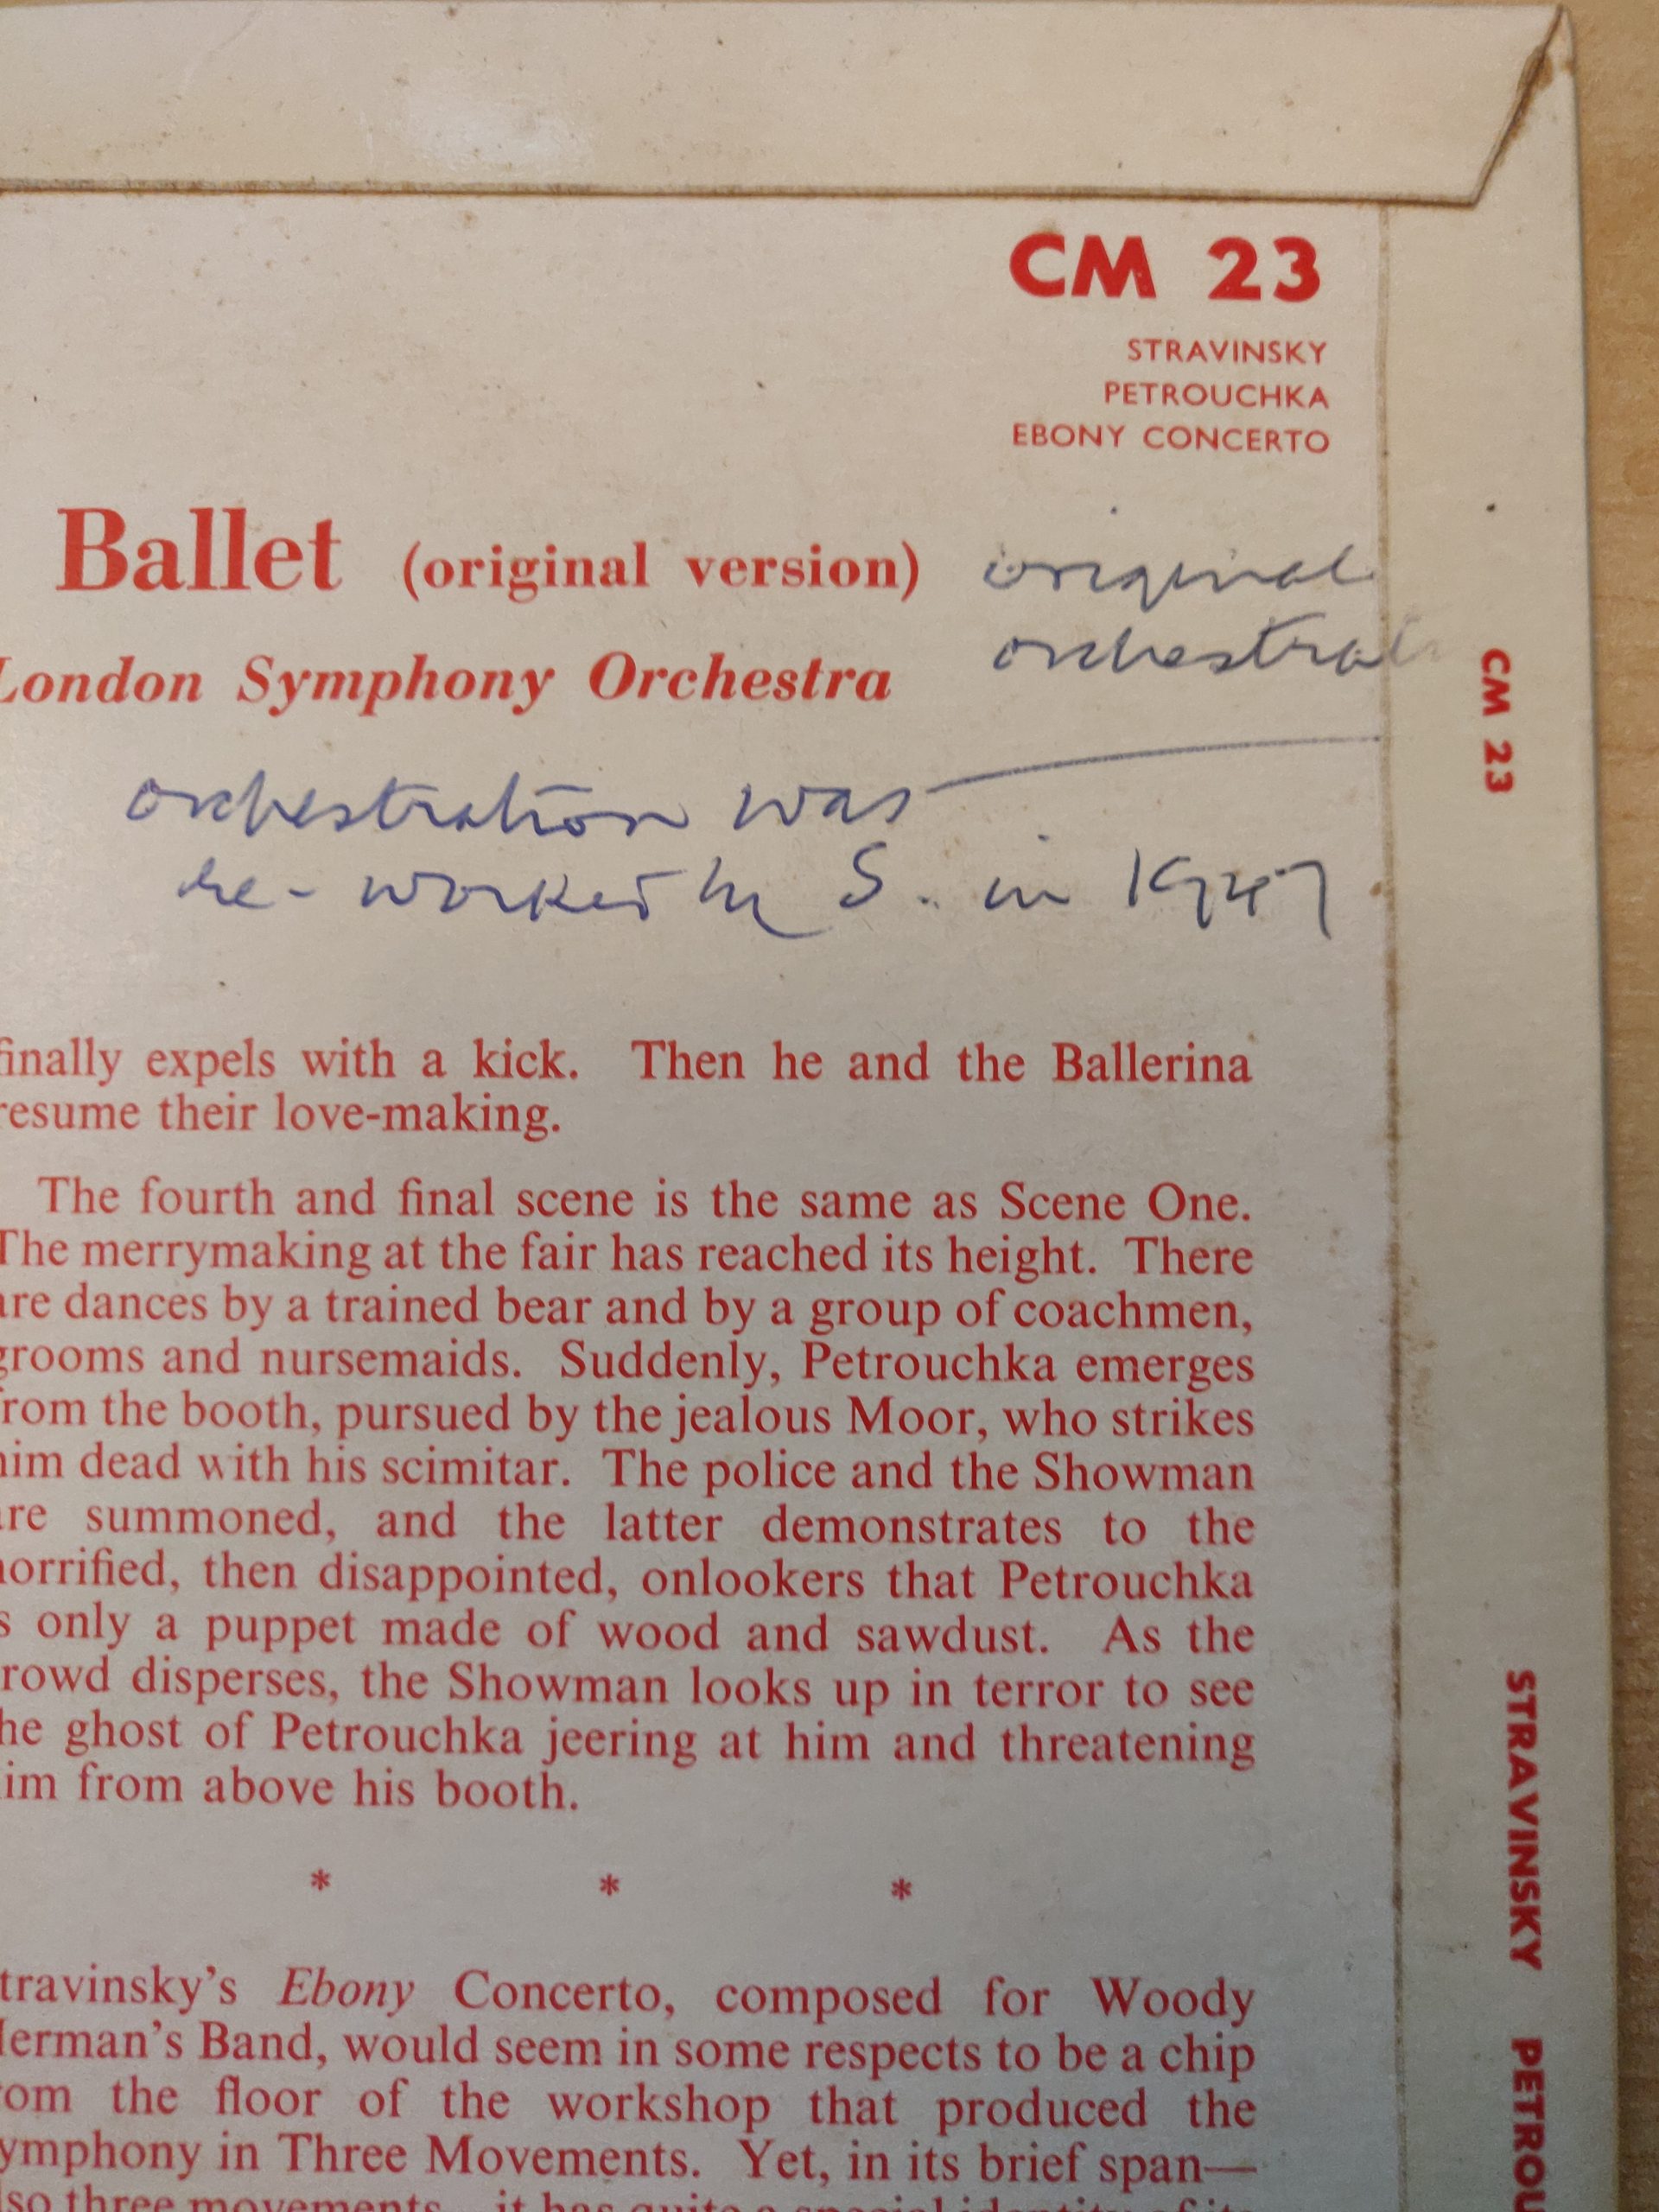 CM 23
STRAVINSKY
PETROUCHKA
EBONY CONCERTO
Ballet (original version)
original
London Symphony Orchestra
orchestral
orchestration was
re-worked by S. in 1947
finally expels with a kick. Then he and the Ballerina
resume their love-making.
The fourth and final scene is the same as Scene One.
The merrymaking at the fair has reached its height. There
are dances by a trained bear and by a group of coachmen,
grooms and nursemaids. Suddenly, Petrouchka emerges
from the booth, pursued by the jealous Moor, who strikes
him dead with his scimitar. The police and the Showman
are summoned, and the latter demonstrates to the
horrified, then disappointed, onlookers that Petrouchka
is only a puppet made of wood and sawdust. As the
crowd disperses, the Showman looks up in terror to see
the ghost of Petrouchka jeering at him and threatening
him from above his booth.
* * *
travinsky's Ebony Concerto, composed for Woody
Herman's Band, would seem in some respects to be a chip
from the floor of the workshop that produced the
ymphony in Three Movements. Yet, in its brief span—
also three movements it has quite a special identity of its
CM 23
STRAVINSKY PETROU